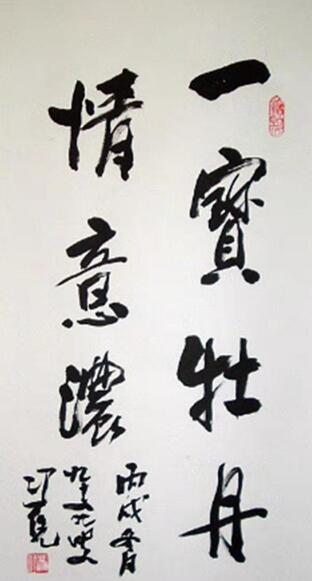 一寶牡丹
情意濃
丙戌冬月